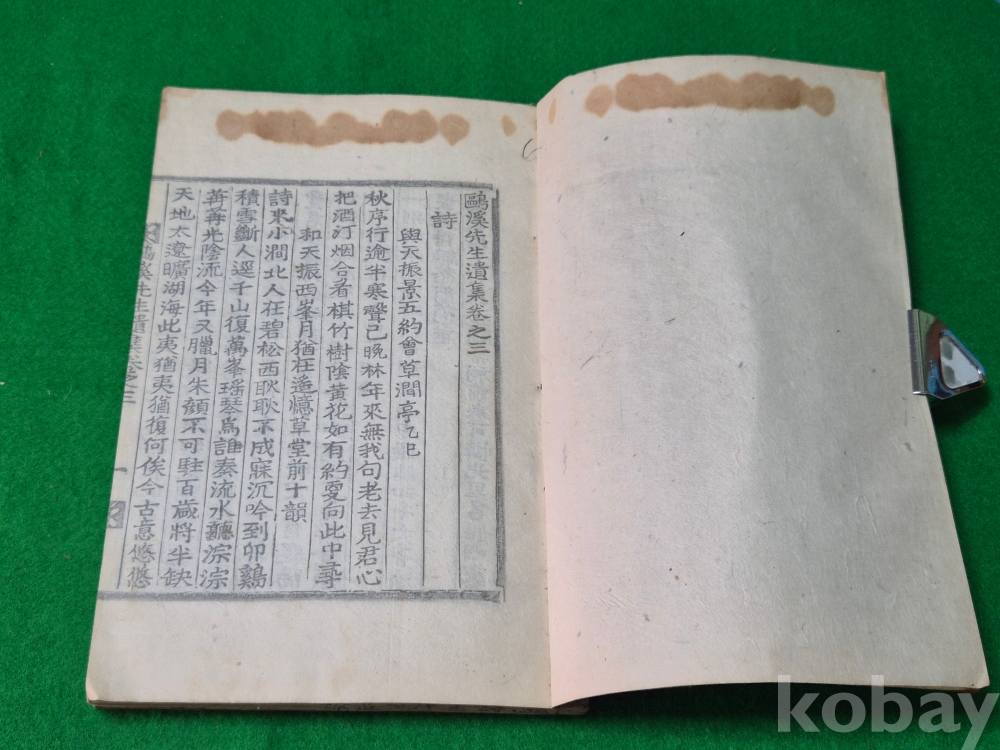 鷗溪先生遺集卷之三
詩
與天振景五約會草澗亭乙巳
秋序行逾半寒聲已晩林年來無我句老去見君心
把酒汀烟合看棋竹樹陰黃花如有約愛向此中尋
和天振西峯月猶在遙憶草堂前十韻
詩來小澗北人在碧松西耿耿不成寐沉吟到卯鷄
積雪斷人逕千山復萬峯瑤琴爲誰奏流水聽淙淙
苒苒光陰流今年又臘月朱顏不可駐百歲將半缺
天地太遼曠湖海此夷猶夷猶復何俟今古意悠悠
鷗溪先生遺集卷之三 一
kobay